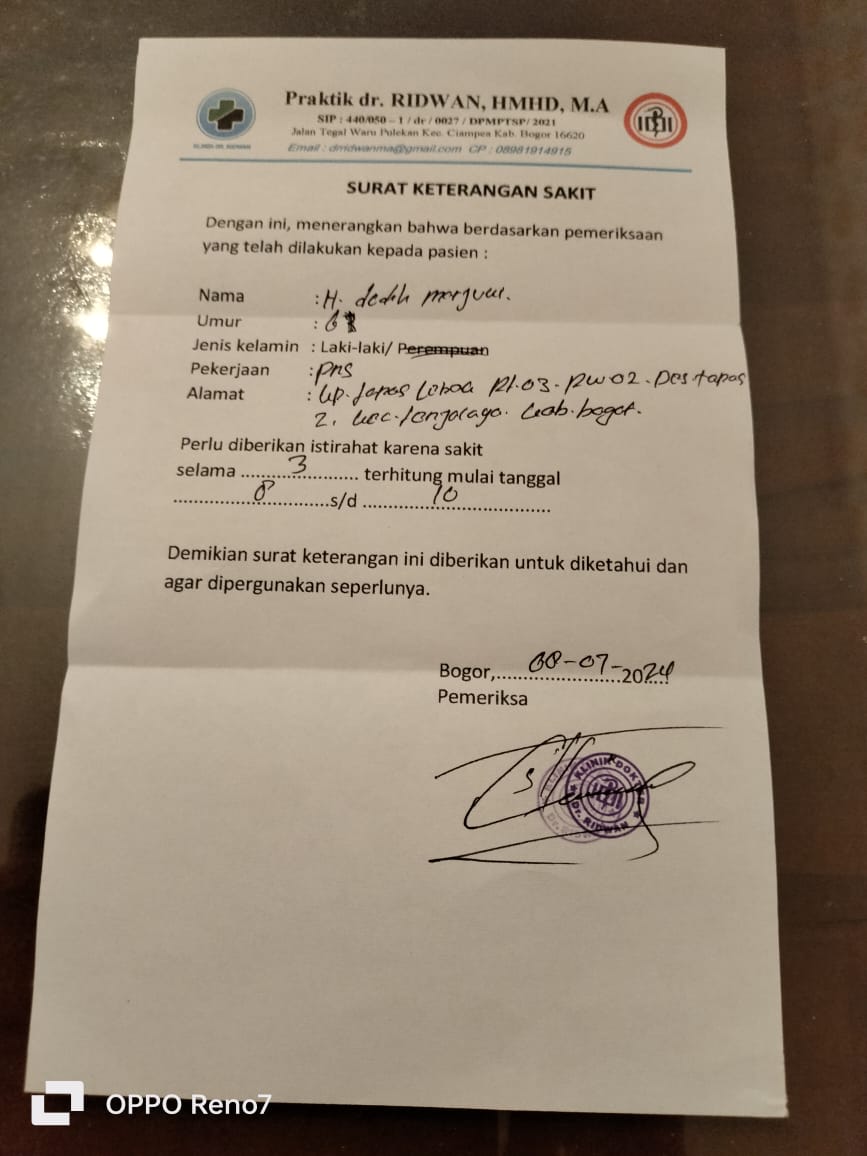 Praktik dr. RIDWAN, HMHD, M.A
SIP : 440/050 – 1 / dr / 0027 / DPMPTSP/ 2021
Jalan Tegal Waru Polekan Kec. Ciampea Kab. Bogor 16620
Email : drridwanma@gmail.com CP : 08981914915
KLINIK DR. RIDWAN
SURAT KETERANGAN SAKIT
Dengan ini, menerangkan bahwa berdasarkan pemeriksaan
yang telah dilakukan kepada pasien :
Nama : H. dedih
Umur :
Jenis kelamin : Laki-laki/ Perempuan
Pekerjaan : PNS
Alamat : RT.03. RW02. Des tapos
2. kec. kab. bogor.
Perlu diberikan istirahat karena sakit
selama ........3........ terhitung mulai tanggal
........8........s/d ........10........
Demikian surat keterangan ini diberikan untuk diketahui dan
agar dipergunakan seperlunya.
Bogor, 08-07-2024
Pemeriksa
KLINIK DOKTER
Dr. RIDWAN
OPPO Reno7